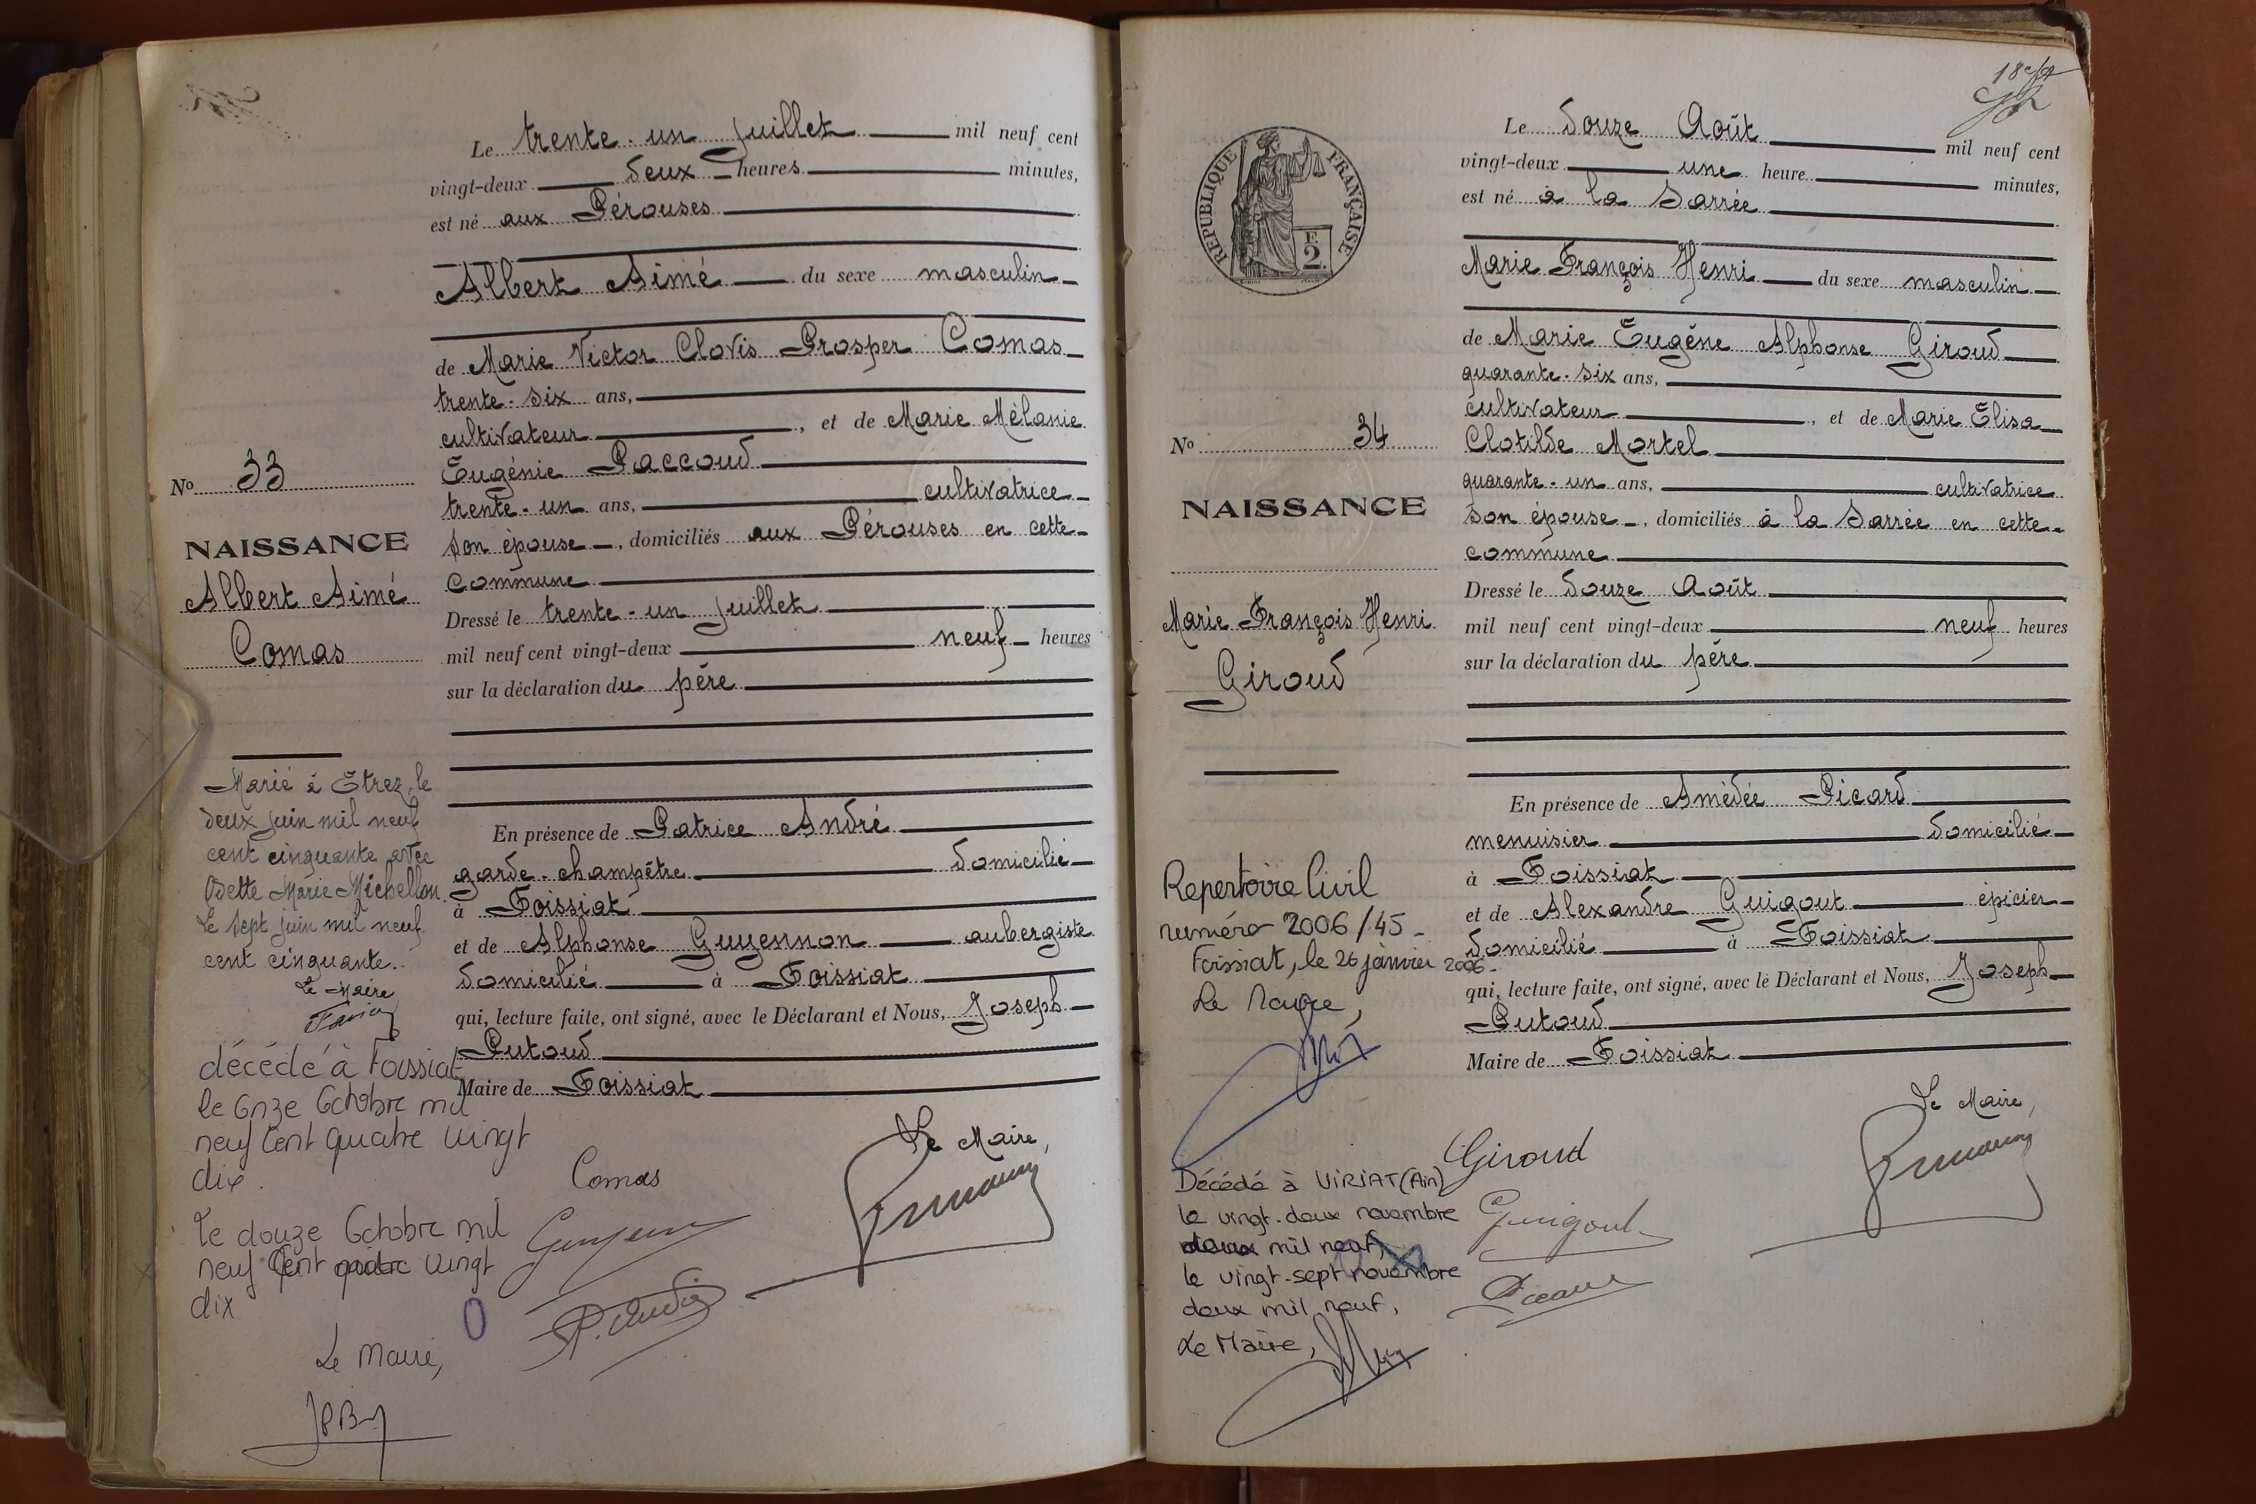 Le trente-un Juillet mil neuf cent
vingt-deux deux heures minutes,
est né aux Pérouses
Albert Aimé du sexe masculin
de Marie Victor Clovis Prosper Comas
trente-six ans,
cultivateur, et de Marie Mélanie
Eugénie Paccoud
trente-un ans, cultivatrice
son épouse, domiciliés aux Pérouses en cette
commune
Dressé le trente-un Juillet
mil neuf cent vingt-deux neuf heures
sur la déclaration du père
En présence de Patrice André
garde-champêtre domicilié
à Foissiat
et de Alphonse Guyennon aubergiste
domicilié à Foissiat
qui, lecture faite, ont signé, avec le Déclarant et Nous, Joseph
Putoud
Maire de Foissiat
Le Maire,
Comas
No 33
NAISSANCE
Albert Aimé
Comas
Marié à Etrez, le
deux juin mil neuf
cent cinquante avec
Odette Marie Michellon.
Le sept juin mil neuf
cent cinquante.
Le Maire
décédé à Foissiat
le Onze Octobre mil
neuf cent quatre vingt
dix.
Le douze Octobre mil
neuf cent quatre vingt
dix
Le Maire,
18
RÉPUBLIQUE FRANÇAISE
E
2
Le douze Août mil neuf cent
vingt-deux une heure minutes,
est né à la Sarrée
Marie François Henri du sexe masculin
de Marie Eugène Alphonse Giroud
quarante-six ans,
cultivateur, et de Marie Elisa
Clotilde Mortel
quarante-un ans, cultivatrice
son épouse, domiciliés à la Sarrée en cette
commune
Dressé le douze Août
mil neuf cent vingt-deux neuf heures
sur la déclaration du père
En présence de Amédée Picard
menuisier domicilié
à Foissiat
et de Alexandre Guigout épicier
domicilié à Foissiat
qui, lecture faite, ont signé, avec le Déclarant et Nous, Joseph
Putoud
Maire de Foissiat
Le Maire,
Giroud
Guigout
Picard
No 34
NAISSANCE
Marie François Henri
Giroud
Repertoire Civil
numéro 2006/45
Foissiat, le 26 janvier 2006
Le Maire,
Décédé à VIRIAT (Ain)
le vingt-deux novembre
deux mil neuf,
le vingt-sept novembre
deux mil neuf,
Le Maire,